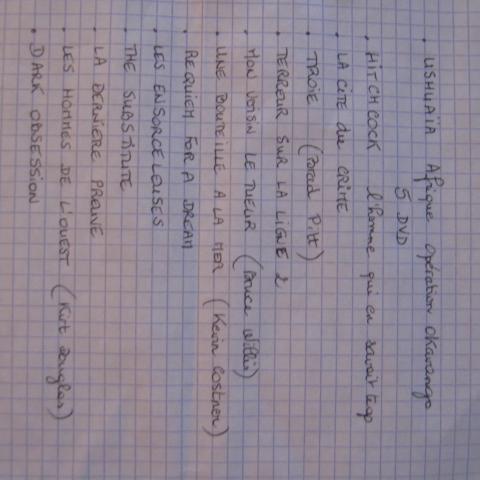 . USHUAÏA Afrique opération okavango
5 DVD
. HITCHCOCK l'homme qui en savait trop
. LA CITE du CRIME
. TROIE (Brad Pitt)
. TERREUR SUR LA LIGNE 2
. MON VOISIN LE TUEUR (Bruce Willis)
. UNE BOUTEILLE A LA MER (Kevin Costner)
. REQUIEM FOR A DREAM
. LES ENSORCELEUSES
. THE SUBSTITUTE
. LA DERNIERE PREUVE
. LES HOMMES DE L'OUEST (Kirt Douglas)
. DARK OBSESSION